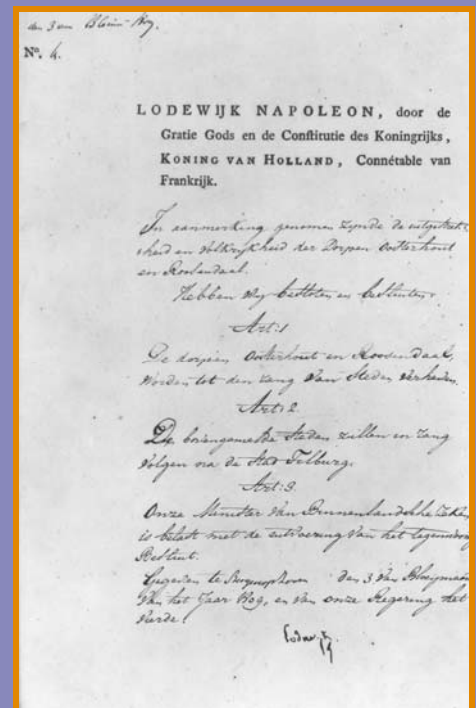 den 3 van Bloei-M
No. 4.
LODEWIJK NAPOLEON, door de
Gratie Gods en de Conſtitutie des Koningrijks,
KONING VAN HOLLAND, Connétable van
Frankrijk.
In aanmerking genomen zynde de uitgestrekt-
heid en Volkrykheid der Dorpen Oosterhout
en Rosendaal.
Hebben Wy besloten en besluiten
Art: 1
De dorpen Oosterhout en Roosendaal,
worden tot den rang van Steden verheven.
Art: 2
De bovengemelde Steden zullen in rang
volgen na de Stad Tilburg.
Art: 3.
Onze Minister van Binnenlandsche Zaken
is belast met de uitvoering van het tegenwoordig
Besluit.
Gegeven te den 3 van Bloeymaand
van het Jaar 1809, en van onze Regering het
vierde.
Lodewyk